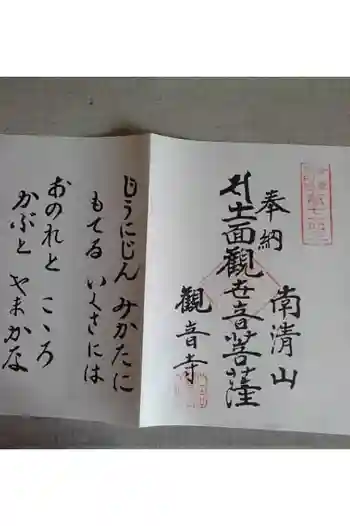 奉納
十一面觀世音菩薩
南清山
觀音寺
じうにじん みかたに
もてる いくさには
おのれと こゝろ
かぶと やまかな